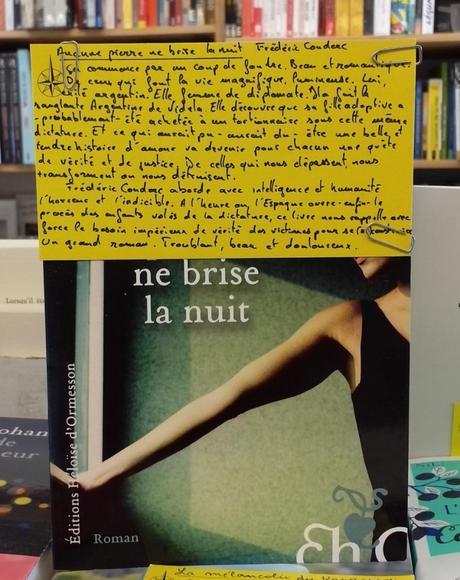 Aucune pierre ne brise la nuit Frédéric Couderc
Ça commence par un coup de foudre. Beau et romantique.
ceux qui font la vie magnifique, lumineuse. Lui,
argentin. Elle femme de diplomate. Il a fui la
sanglante Argentine de Videla. Elle découvre que sa fille adoptive a
-probablement- été achetée à un tortionnaire sous cette même
dictature. Et ce qui aurait pu - aurait dû - être une belle et
tendre histoire d'amour va devenir pour chacun une quête
de vérité et de justice. De celles qui nous dépassent, nous
transforment ou nous détruisent.
Frédéric Couderc aborde avec intelligence et humanité
l'horreur et l'indicible. A l'heure où l'Espagne ouvre enfin le
procès des enfants volés de la dictature, ce livre nous rappelle avec
force le besoin impérieux de vérité des victimes pour se
Un grand roman. Troublant, beau et douloureux.
ne brise
la nuit
Éditions Héloïse d'Ormesson
Roman
EhO
Lorsqu'il
ohan
de
eur
La mélancolie du